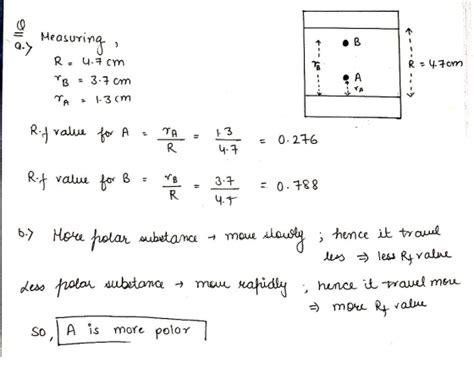 Q
a.) Measuring,
R = 4.7 cm
rB = 3.7 cm
rA = 1.3 cm
B
A
rB
rA
R = 4.7cm
R.f value for A = rA/R = 1.3/4.7 = 0.276
R.f value for B = rB/R = 3.7/4.7 = 0.788
b.) More polar substance → move slowly ; hence it travel
less ⇒ less Rf value
Less polar substance → move rapidly ; hence it travel more
⇒ more Rf value
SO, A is more polor